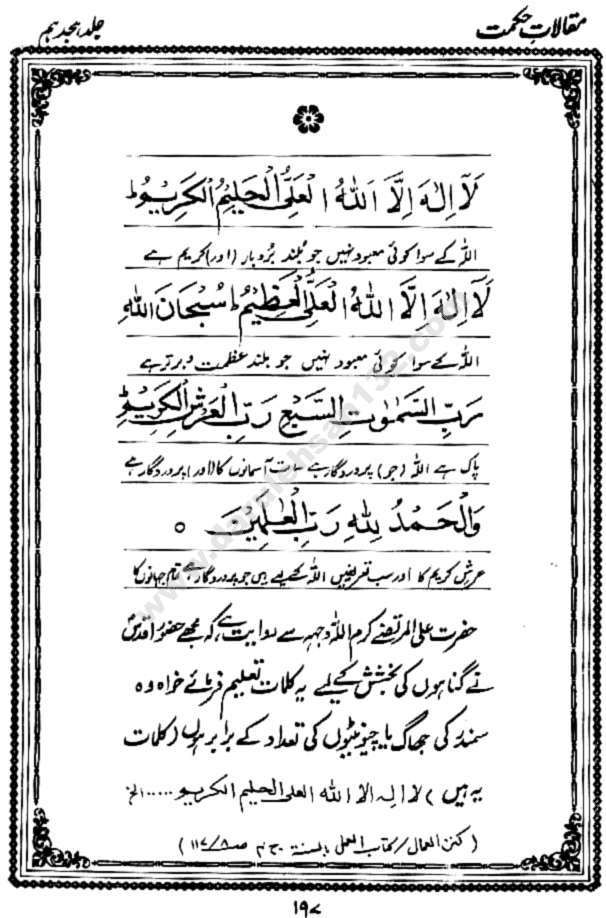 مقالاتِ حکمت
جلد ہجدہم
لَآ اِلٰهَ اِلَّا اللّٰهُ الْعَلِیُّ الْحَلِیْمُ الْکَرِیْمُ ط
اللہ کے سوا کوئی معبود نہیں جو بلند بُردبار (اور) کریم ہے
لَآ اِلٰهَ اِلَّا اللّٰهُ الْعَلِیُّ الْعَظِیْمُ ط سُبْحَانَ اللّٰهِ
اللہ کے سوا کوئی معبود نہیں جو بلند عظمت و برتر ہے
رَبِّ السَّمٰوٰتِ السَّبْعِ رَبِّ الْعَرْشِ الْکَرِیْمِ ط
پاک ہے اللہ (جو) پروردگار ہے سات آسمانوں کا (اور) پروردگار ہے
وَالْحَمْدُ لِلّٰهِ رَبِّ الْعٰلَمِیْنَ ○
عرش کریم کا اور سب تعریفیں اللہ کیلیے ہیں جو پروردگار ہے تمام جہانوں کا
حضرت علی المرتضےٰ کرم اللہ وجہہ سے روایت ہے کہ مجھے حضور اقدسؐ
نے گناہوں کی بخشش کے لیے یہ کلمات تعلیم فرمائے خواہ وہ
سمندر کی جھاگ یا چیونٹیوں کی تعداد کے برابر ہوں (کلمات
یہ ہیں) لا الہ الا اللہ العلی الحلیم الکریم ..... الخ
(کنز العمال / کتاب العمل بالسنۃ ج م صـ ۱۱۷/۸)
۱۹۷
www.darulehsan132.com